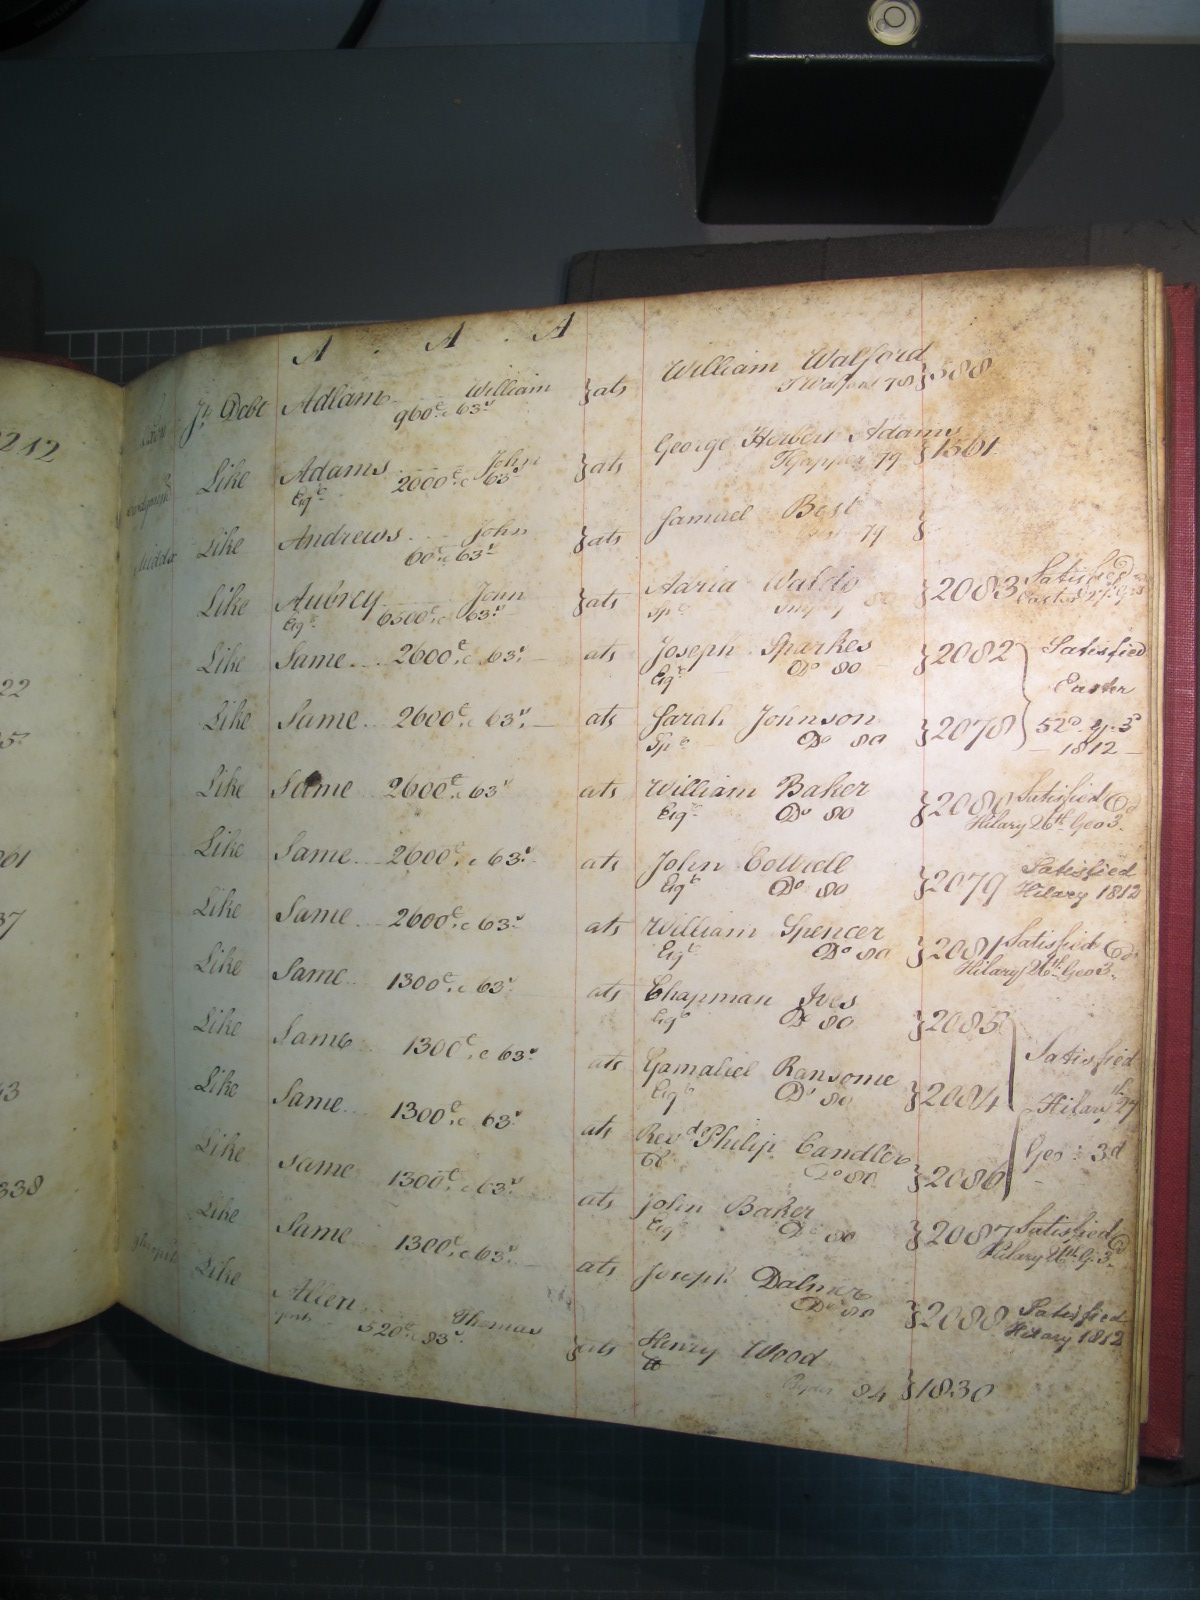 A . A . A
Jt Debt Adlam William } ats William Walford
960£ c 63s T Walford 78 } 588
Like Adams John } ats George Herbert Adams
Esqr 2000£ c 63s 79 } 1561
Like Andrews John } ats Samuel Best
60£ c 63s 79 }
Like Aubrey John } ats Waldo } 2083 Satisfied
Esqr 6500£ c 63s Spr 80 Easter
Like Same 2600£ c 63s ats Joseph Sparkes } 2082 Satisfied
Esqr Do 80 Easter
Like Same 2600£ c 63s ats Sarah Johnson } 2078 52d G. 3d
Spr Do 80 1812
Like Same 2600£ c 63s ats William Baker } 2080 Satisfied
Esqr Do 80 Hilary 26th Geo 3.
Like Same 2600£ c 63s ats John Cowell } 2079 Satisfied
Esqr Do 80 Hilary 1812
Like Same 2600£ c 63s ats William Spencer } 2081 Satisfied
Esqr Do 80 Hilary 26th Geo 3.
Like Same 1300£ c 63s ats Chapman Ives } 2085
Esqr Do 80
Like Same 1300£ c 63s ats Gamaliel Ransome } 2084 Satisfied
Esqr Do 80 Hilary 27th
Like Same 1300£ c 63s ats Revd Philip Candler } 2086 Geo: 3d
Do 80
Like Same 1300£ c 63s ats John Baker } 2087 Satisfied
Esqr Do 80 Hilary 26th G. 3.
Like Same 1300£ c 63s ats Joseph Dalmer } 2088 Satisfied
Do 80 Hilary 1812
Like Allen Thomas } ats Henry Wood
520£ c 83s 84 } 1830